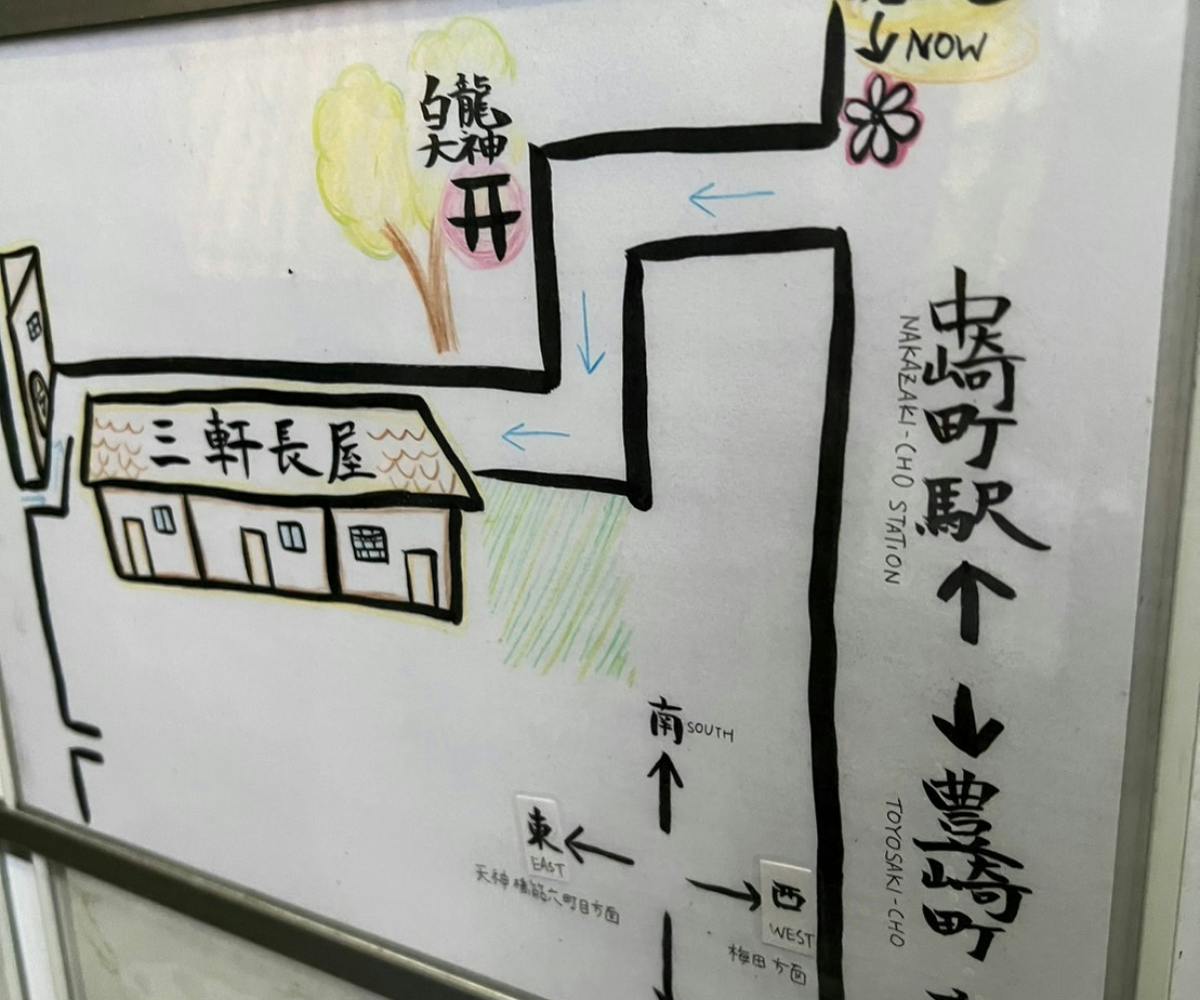 NOW
白龍
大神
三軒長屋
中崎町駅
NAKAZAKI-CHO STATION
豊崎町
TOYOSAKI-CHO
南 SOUTH
東
EAST
天神橋筋六町目方面
西
WEST
梅田方面